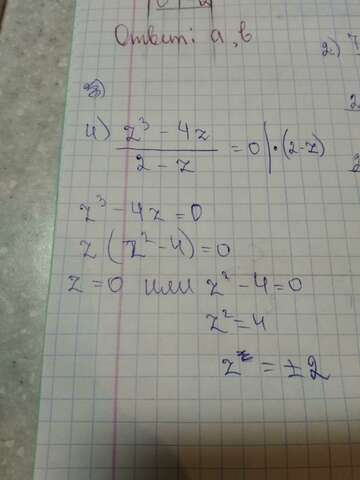 Ответ: а, в
2)
4) (z³ - 4z)/(2 - z) = 0 | · (2-z)
z³ - 4z = 0
z (z² - 4) = 0
z = 0 или z² - 4 = 0
z² = 4
z = ±2